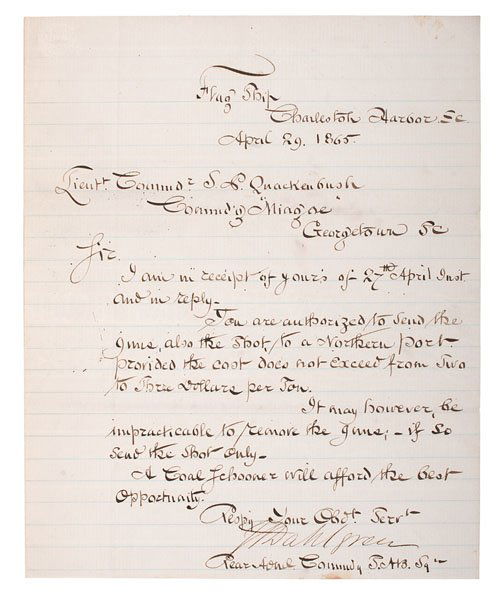 Flag Ship
Charleston Harbor SC
April 29. 1865.
Lieut. Commdr. S. P. Quackenbush
Commd'g "Mingoe"
Georgetown SC
Sir.
I am in receipt of yours of 27th April Inst
and in reply—
You are authorized to send the
guns, also the shot to a Northern Port
provided the cost does not exceed from Two
to Three Dollars per Ton.
It may however, be
impracticable to remove the guns; — if so
send the shot only—
A Coal Schooner will afford the best
opportunity.
Respy Your Obdt. Servt
Dahlgren
Rear Adml. Commdg S. Atl. Sqn